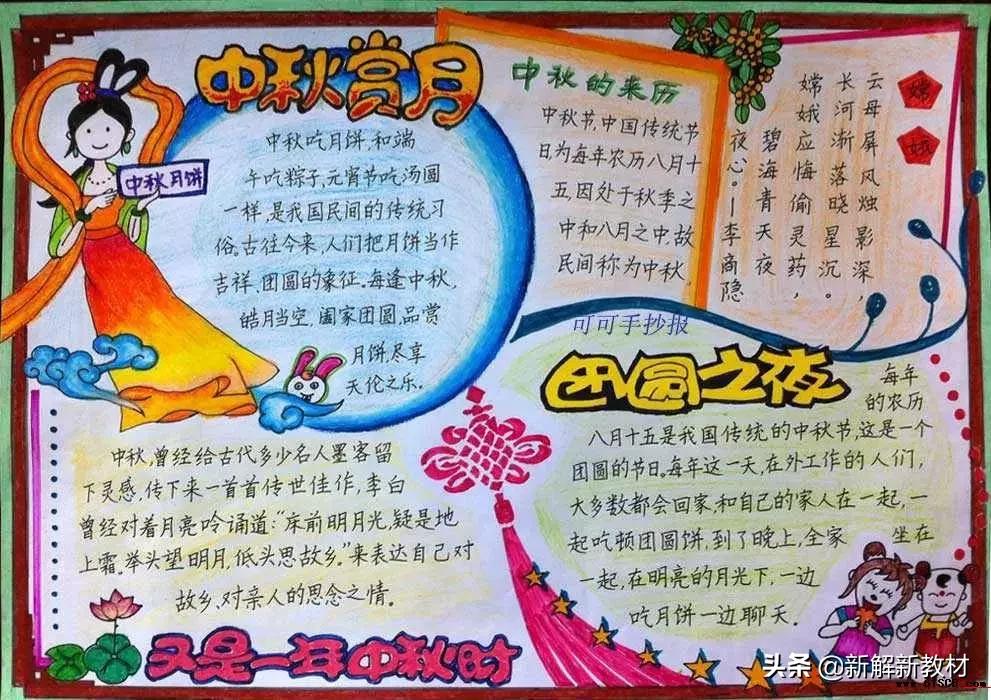 中秋赏月
中秋月饼
中秋吃月饼,和端
午吃粽子,元宵节吃汤圆
一样,是我国民间的传统习
俗。古往今来,人们把月饼当作
吉祥、团圆的象征。每逢中秋,
皓月当空,阖家团圆,品赏
月饼,尽享
天伦之乐。
中秋的来历
中秋节,中国传统节
日为每年农历八月十
五,因处于秋季之
中和八月之中,故
民间称为中秋,
嫦
娥
云母屏风烛影深,
长河渐落晓星沉。
嫦娥应悔偷灵药,
碧海青天夜
夜心。—李商隐
可可手抄报
团圆之夜
每年
的农历
八月十五是我国传统的中秋节,这是一个
团圆的节日。每年这一天,在外工作的人们,
大多数都会回家,和自己的家人在一起,一
起吃顿团圆饼,到了晚上,全家坐在
一起,在明亮的月光下,一边
吃月饼一边聊天.
中秋,曾经给古代多少名人墨客留
下灵感,传下来一首首传世佳作,李白
曾经对着月亮吟诵道:“床前明月光,疑是地
上霜。举头望明月,低头思故乡。”来表达自己对
故乡、对亲人的思念之情。
又是一年中秋时
头条 @新解新教材